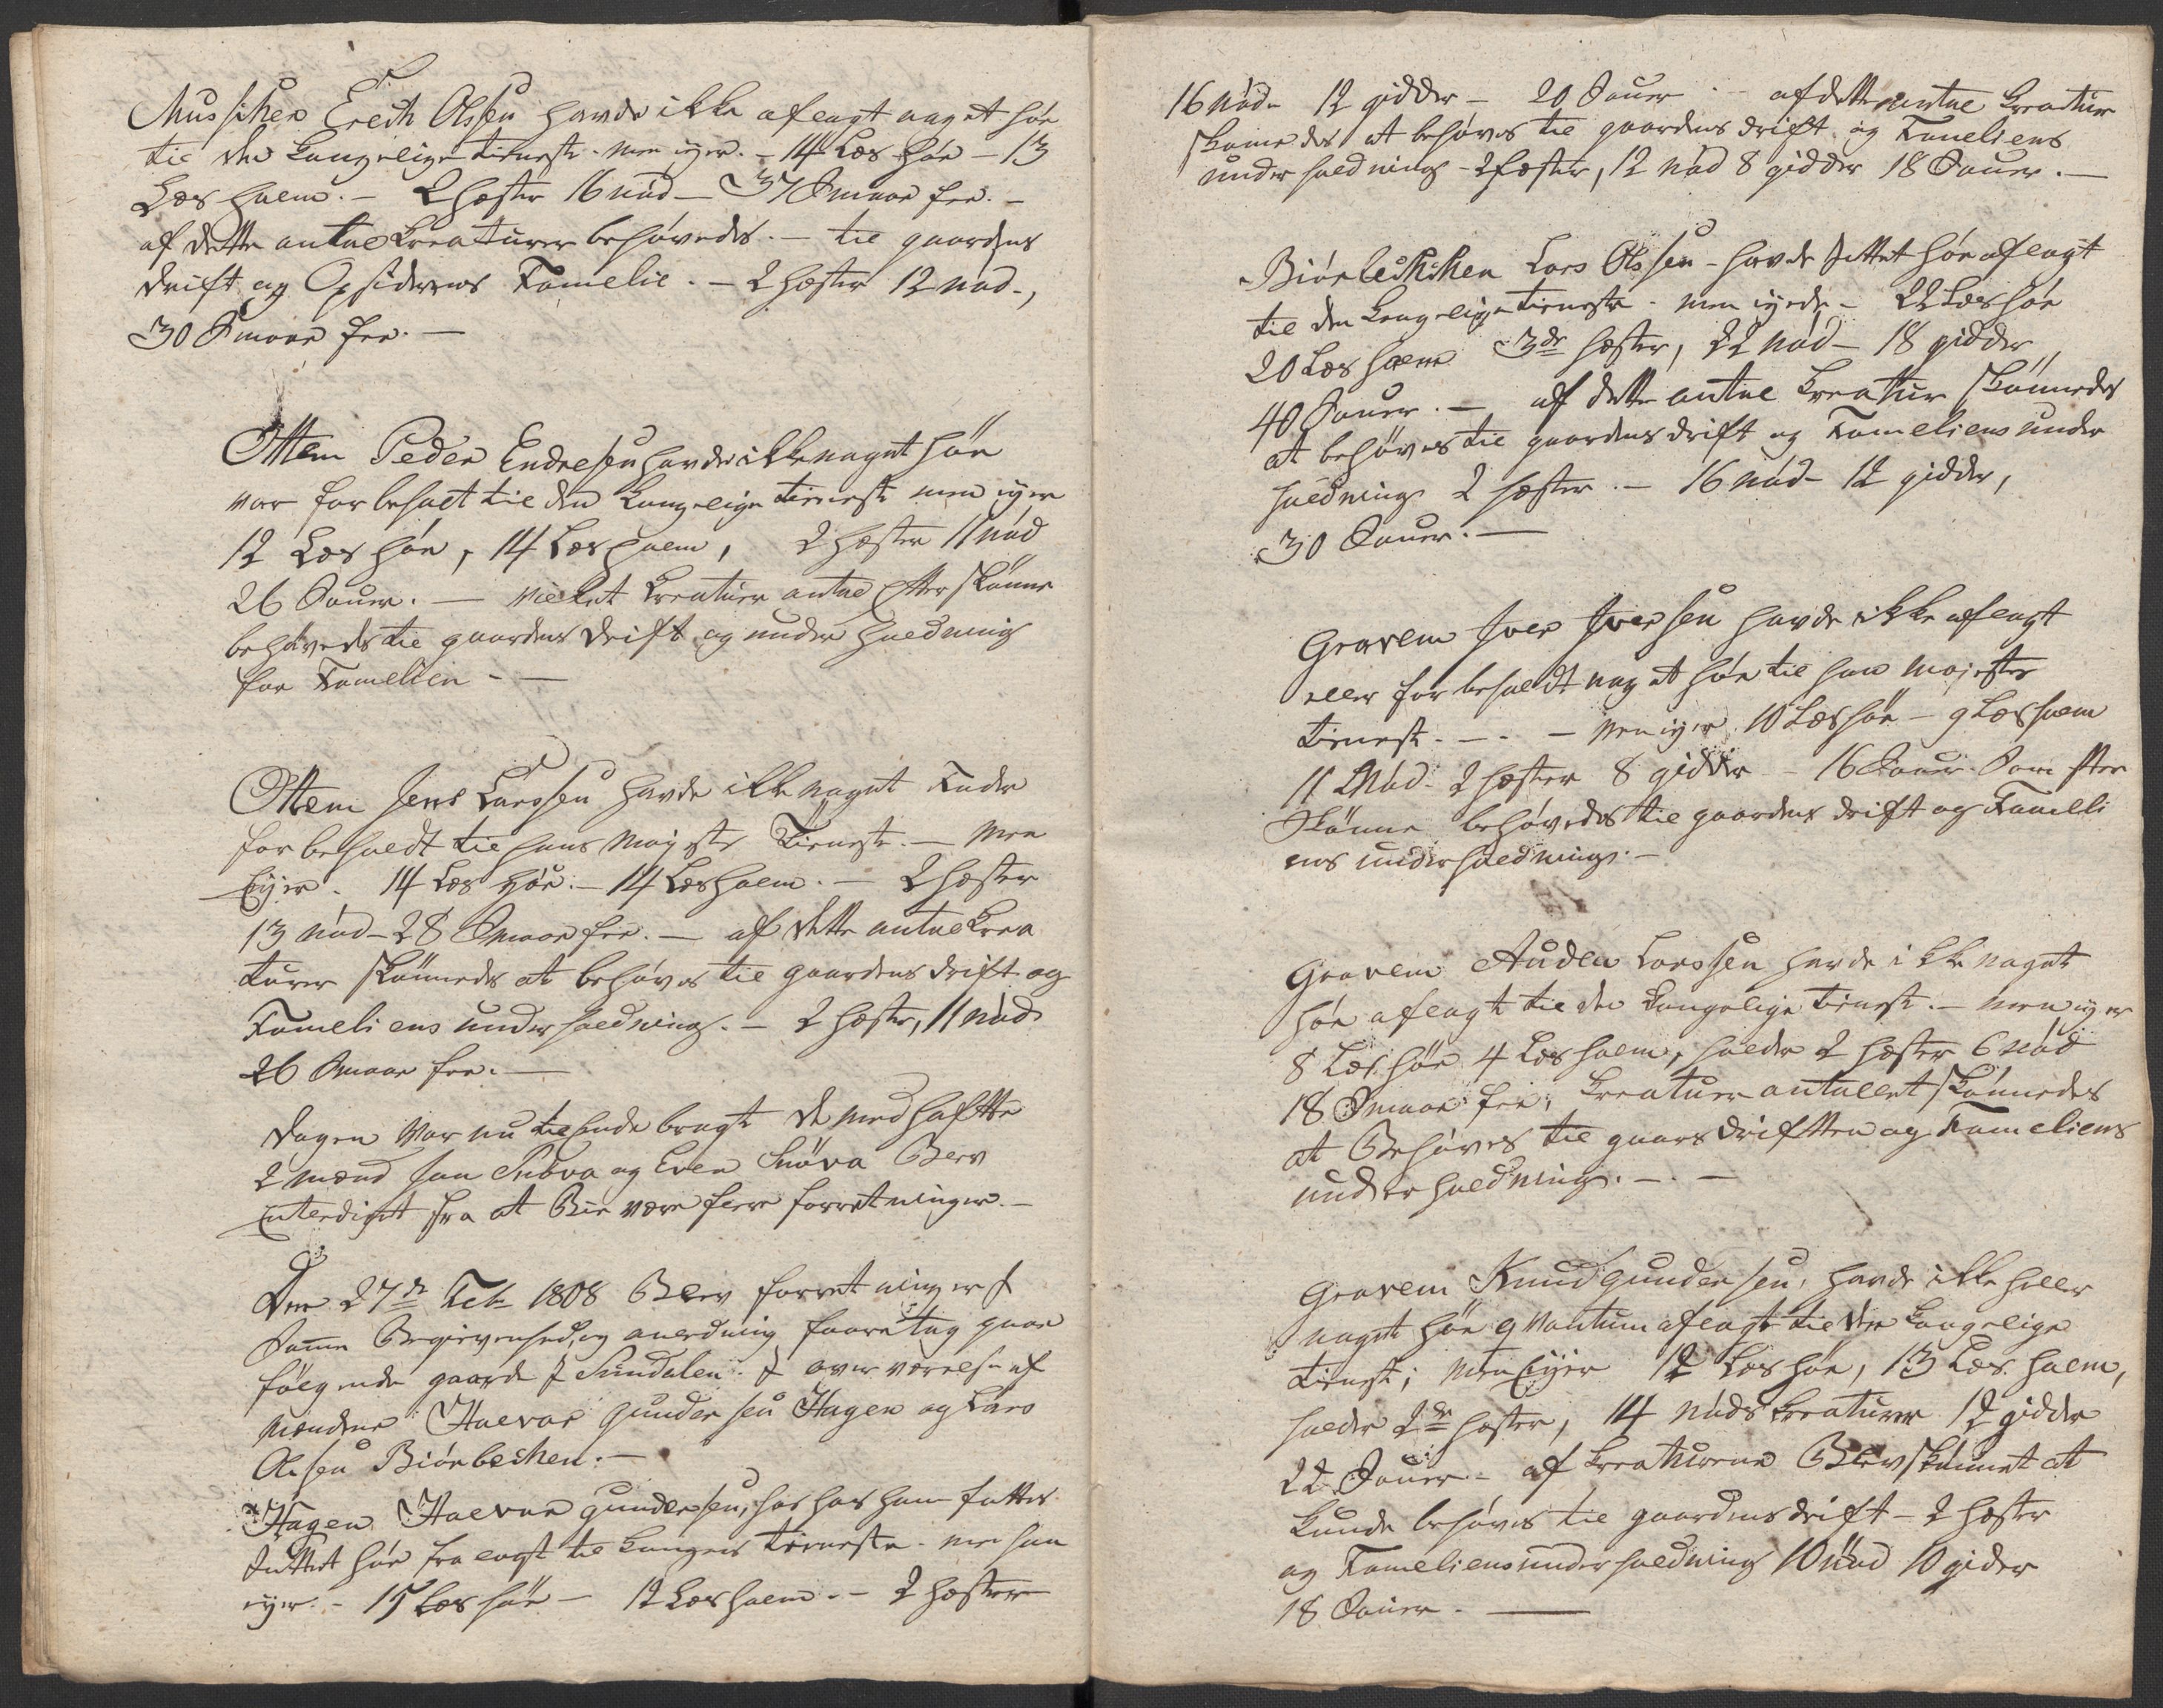 Musjihen Erech Olssen havde ikke aflagt naget höe
til den kongelige tieneste. men eyer. - 14 Læs höe - 13
Læs halm. - 2 hæster 16 nöd - 37 Smaae fee. -
af dette antal Kreaturer behövedes. - til gaardens
drift og Opsiderens Famelie. - 2 hæster 12 nöd.,
30 Smaae fee. -
Ottem Peder Endresen havde ikke naget höe
var forbeholt til den kongelige tieneste men eyer
12 Læs höe, 14 Læs halm, 2 hæster 11 nöd
26 Sauer. - vilket Kreatuer antal efter skönne
behövedes til gaardens drift og under holdning
for Famelien - -
Ottem Jens Larssen havde ikke naget Foder
forbeholdt til hans Mayestæ Tieneste. - Men
Eyer. 14 Læs Höe. - 14 Læs halm. - 2 hæster
13 nöd - 28 Smaae fee. - af dette antal Krea
turer skönnedes at behöves til gaardens drift og
Fameliens underholdning. - 2 hæster, 11 nöd
26 Smaae fee. -
Dagen var nu til ende bragt de medhaftte
2 mænd Jon og Even Snöva Blev
Entlediget fra at Bie være flere forretninger. -
Den 27de Feb 1808 Blev forretninger i
Samme Begivenhed, og anledning foore tag paa
fölgende gaarde i Sundalen. i over værelse af
Mændene Halvor Gundersen Hagen og Lars
Olsen Biörbechen. -
Hagen Halvor Gundersen, hos ham fattes
Juttet höe fra lagt til kongens tieneste. men han
eyer. - 15 Læs höe - 12 Læs halm. - 2 hæster
16 nöd - 12 gidder - 20 Sauer - af dette antal Kreatur
skönnedes at behöves til gaardens drift og Fameliens
under holdning - 2 hæster, 12 nöd 8 gidder 18 Sauer. -
Biörbechken Lars Olssen - havde Juttet höe aflagt
til den kongelige tieneste - men eyede - 22 Læs höe
20 Læs halm 3de hæster, 22 nöd - 18 gidder
40 Sauer. - af dette antal Kreatur skönnedes
at behöves til gaardens drift og Fameliens under
holdning 2 hæster. - 16 nöd - 12 gidder,
30 Sauer. -
Gravem Iver Iversen havde ikke aflagt
eller forbeholdt naget höe til hans Majestæ
tieneste. - . - Men eyer 10 Læs höe - 9 Læs halm
11 Nöd - 2 hæster 8 gidder - 16 Sauer. Som efter
Skönne behövedes til gaardens drift og Fameli
ens underholdning. -
Gravem Auden Larssen havde ikke naget
höe aflagt til den kongelige tieneste. - men eyer
8 Læs höe 4 Læs halm, holder 2 hæster 6 nöd
18 Smaae fee, Kreatuer antallet skönnedes
at Behöves til gaars driften og Fameliens
underholdning. - . -
Gravem Knud Gundersen, havde ikke heller
naget höe qvantum aflagt til den kongelige
tieneste; men Eyer 12 Læs höe, 13 Læs halm,
holder 2de hæster, 14 nöds Kreaturer 12 gidder
22 Sauer - af Kreaturene Blev skönnet at
kunde behöves til gaardens drift - 2 hæster
og Fameliens underholdning 10 nöd 10 gider
18 Sauer. -